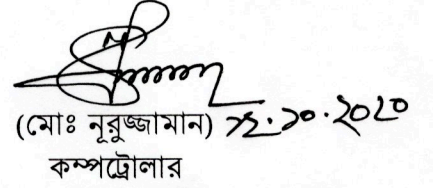 (মোঃ নূরুজ্জামান) ২২.১০.২০২০
কম্পট্রোলার